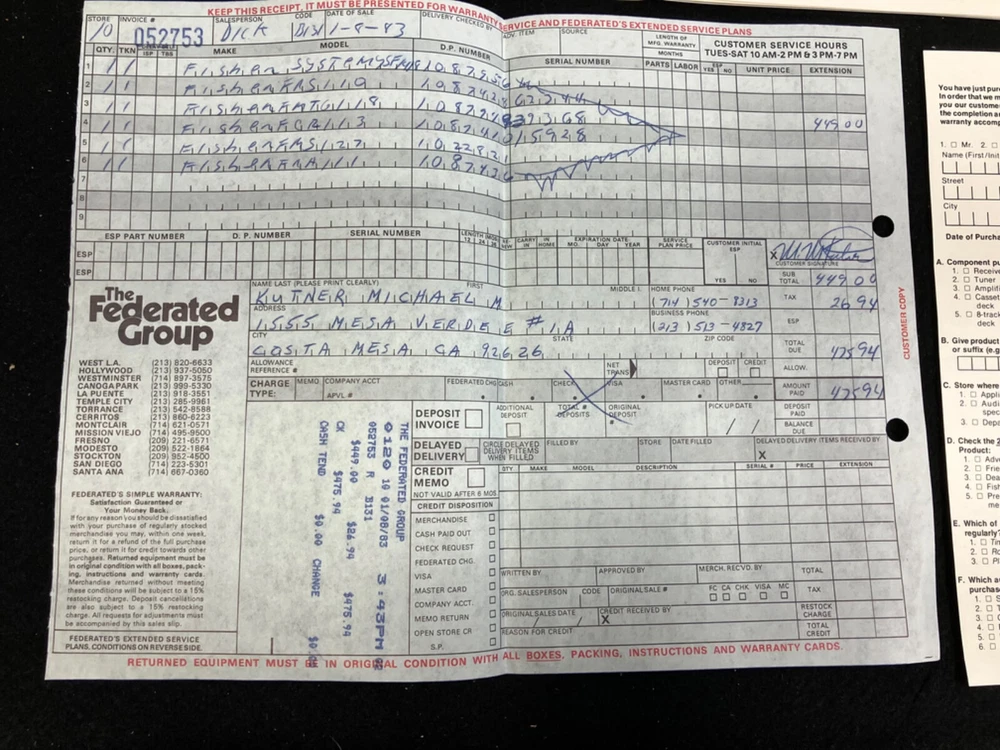 KEEP THIS RECEIPT, IT MUST BE PRESENTED FOR WARRANTY SERVICE AND FEDERATED'S EXTENDED SERVICE PLANS
STORE INVOICE # SALESPERSON CODE DATE OF SALE DELIVERY CHECKED BY ADV. ITEM SOURCE
10 052753 DICK B131 1-8-83
LENGTH OF MFG. WARRANTY MONTHS PARTS LABOR
CUSTOMER SERVICE HOURS
TUES-SAT 10 AM-2 PM & 3 PM-7 PM
QTY. TKN ESP TBS MAKE MODEL D.P. NUMBER SERIAL NUMBER ESP YES NO UNIT PRICE EXTENSION
1 1 1 Fisher SYSTEM
2 1 1 Fisher
3 1 1 Fisher
4 1 1 Fisher 449 00
5 1 1 Fisher
6 1 1 Fisher
7
8
9
ESP PART NUMBER D.P. NUMBER SERIAL NUMBER CARRY IN IN HOME EXPIRATION DATE MO. DAY YEAR SERVICE PLAN PRICE CUSTOMER INITIAL ESP YES NO
ESP
ESP
X CUSTOMER SIGNATURE
SUB TOTAL 449 00
The Federated Group
NAME LAST (PLEASE PRINT CLEARLY) FIRST MIDDLE I. HOME PHONE
KUTNER MICHAEL M (714) 540-8313 TAX 26 94
ADDRESS BUSINESS PHONE
1555 MESA VERDE E #1A (213) 513-4827 ESP
CITY STATE ZIP CODE
COSTA MESA CA 92626 TOTAL DUE 475 94
ALLOWANCE REFERENCE # NET TRANS DEPOSIT CREDIT ALLOW.
CHARGE TYPE: MEMO COMPANY ACCT APVL # FEDERATED CHG CASH CHECK VISA MASTER CARD OTHER AMOUNT PAID 475 94
DEPOSIT INVOICE ADDITIONAL DEPOSIT TOTAL # DEPOSITS ORIGINAL DEPOSIT PICK UP DATE DEPOSIT PAID
BALANCE DUE
DELAYED DELIVERY CIRCLE DELAYED DELIVERY ITEMS WHEN FILLED FILLED BY STORE DATE FILLED DELAYED DELIVERY ITEMS RECEIVED BY
X
CREDIT MEMO
NOT VALID AFTER 6 MOS.
QTY. MAKE MODEL DESCRIPTION SERIAL # PRICE EXTENSION
CREDIT DISPOSITION
MERCHANDISE
CASH PAID OUT
CHECK REQUEST
FEDERATED CHG.
VISA
MASTER CARD
COMPANY ACCT.
MEMO RETURN
OPEN STORE CR
S.P.
WRITTEN BY APPROVED BY MERCH. RECVD. BY TOTAL
ORG. SALESPERSON CODE ORIGINAL SALE # FC CA CHK VISA MC TAX
ORIGINAL SALES DATE CREDIT RECEIVED BY RESTOCK CHARGE
X
REASON FOR CREDIT TOTAL CREDIT
WEST L.A. (213) 820-6633
HOLLYWOOD (213) 937-5050
WESTMINSTER (714) 897-3575
CANOGA PARK (213) 999-5330
LA PUENTE (213) 918-3551
TEMPLE CITY (213) 285-9961
TORRANCE (213) 542-8588
CERRITOS (213) 860-6223
MONTCLAIR (714) 621-0571
MISSION VIEJO (714) 495-9500
FRESNO (209) 221-6571
MODESTO (209) 522-1864
STOCKTON (209) 952-4500
SAN DIEGO (714) 223-5301
SANTA ANA (714) 667-0360
FEDERATED'S SIMPLE WARRANTY:
Satisfaction Guaranteed or
Your Money Back.
If for any reason you should be dissatisfied
with your purchase of regularly stocked
merchandise you may, within one week,
return it for a refund of the full purchase
price, or return it for credit towards other
purchases. Returned equipment must be
in original condition with all boxes, pack-
ing, instructions and warranty cards.
Merchandise returned without meeting
these conditions will be subject to a 15%
restocking charge. Deposit cancellations
are also subject to a 15% restocking
charge. All requests for adjustments must
be accompanied by this sales slip.
FEDERATED'S EXTENDED SERVICE
PLANS. CONDITIONS ON REVERSE SIDE.
THE FEDERATED GROUP
0120 10 01/08/83 3:43PM
052753 R B131
$449.00 $26.94 $475.94
CK $475.94
CASH TEND $0.00 CHANGE
CUSTOMER COPY
RETURNED EQUIPMENT MUST BE IN ORIGINAL CONDITION WITH ALL BOXES, PACKING, INSTRUCTIONS AND WARRANTY CARDS.
You have just pur
In order that we m
you our custome
the completion a
warranty accomp
1. Mr. 2.
Name (First/Init
Street
City
Date of Purcha
A. Component pu
1. Receiv
2. Tuner
3. Amplifi
4. Casset
deck
5. 8-track
deck
B. Give product
or suffix (e.g
C. Store where
1. Appli
2. Audi
spec
3. Dep
D. Check the
Product:
1. Adve
2. Frie
3. Dea
4. Fish
5. Pre
me
E. Which of
regularly?
1. Tim
2. Ro
3. Pl
F. What
purchas
1. S
2. T
3.
4.
5.
6.